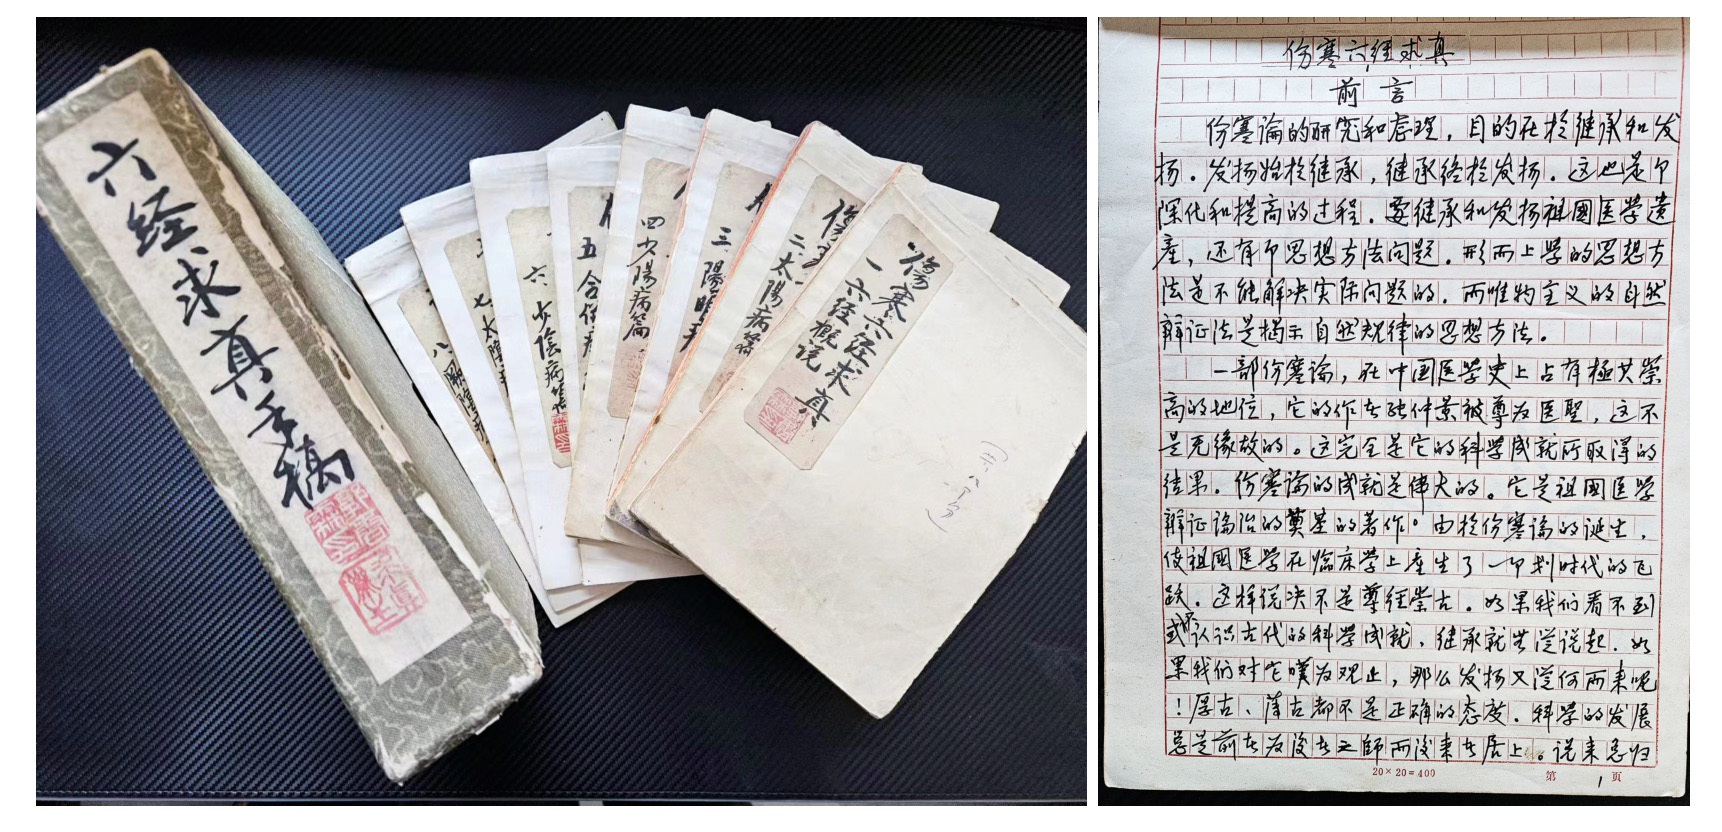 六经求真手稿
傷寒六经求真
一六经概说
二太陽病篇
三陽明
四少陽病篇
五合併
六少陰病
七太陰
八厥陰
伤寒六经求真
前言
伤寒論的研究和整理，目的在於继承和发
扬．发扬始於继承，继承终於发扬．这也是个
深化和提高的过程．要继承和发扬祖國医学遗
産，还有个思想方法问题．形而上学的思想方
法是不能解决实际问题的．而唯物主义的自然
辩证法是揭示自然规律的思想方法。
一部伤寒論，在中国医学史上占有極其崇
高的地位，它的作者張仲景被尊为医聖，这不
是无缘故的。这完全是它的科学成就所取得的
结果．伤寒論的成就是伟大的。它是祖國医学
辩证論治的奠基的著作。由於伤寒論的诞生，
使祖國医学在临床学上産生了一个划时代的飞
跃．这样说决不是尊经崇古．如果我们看不到
或不认识古代的科学成就，继承就无從说起．如
果我们对它嘆为观止，那么发扬又從何而来呢
！厚古、薄古都不是正确的态度．科学的发展
总是前者为後者之師而後来者居上。说来总归
20×20=400
第1页